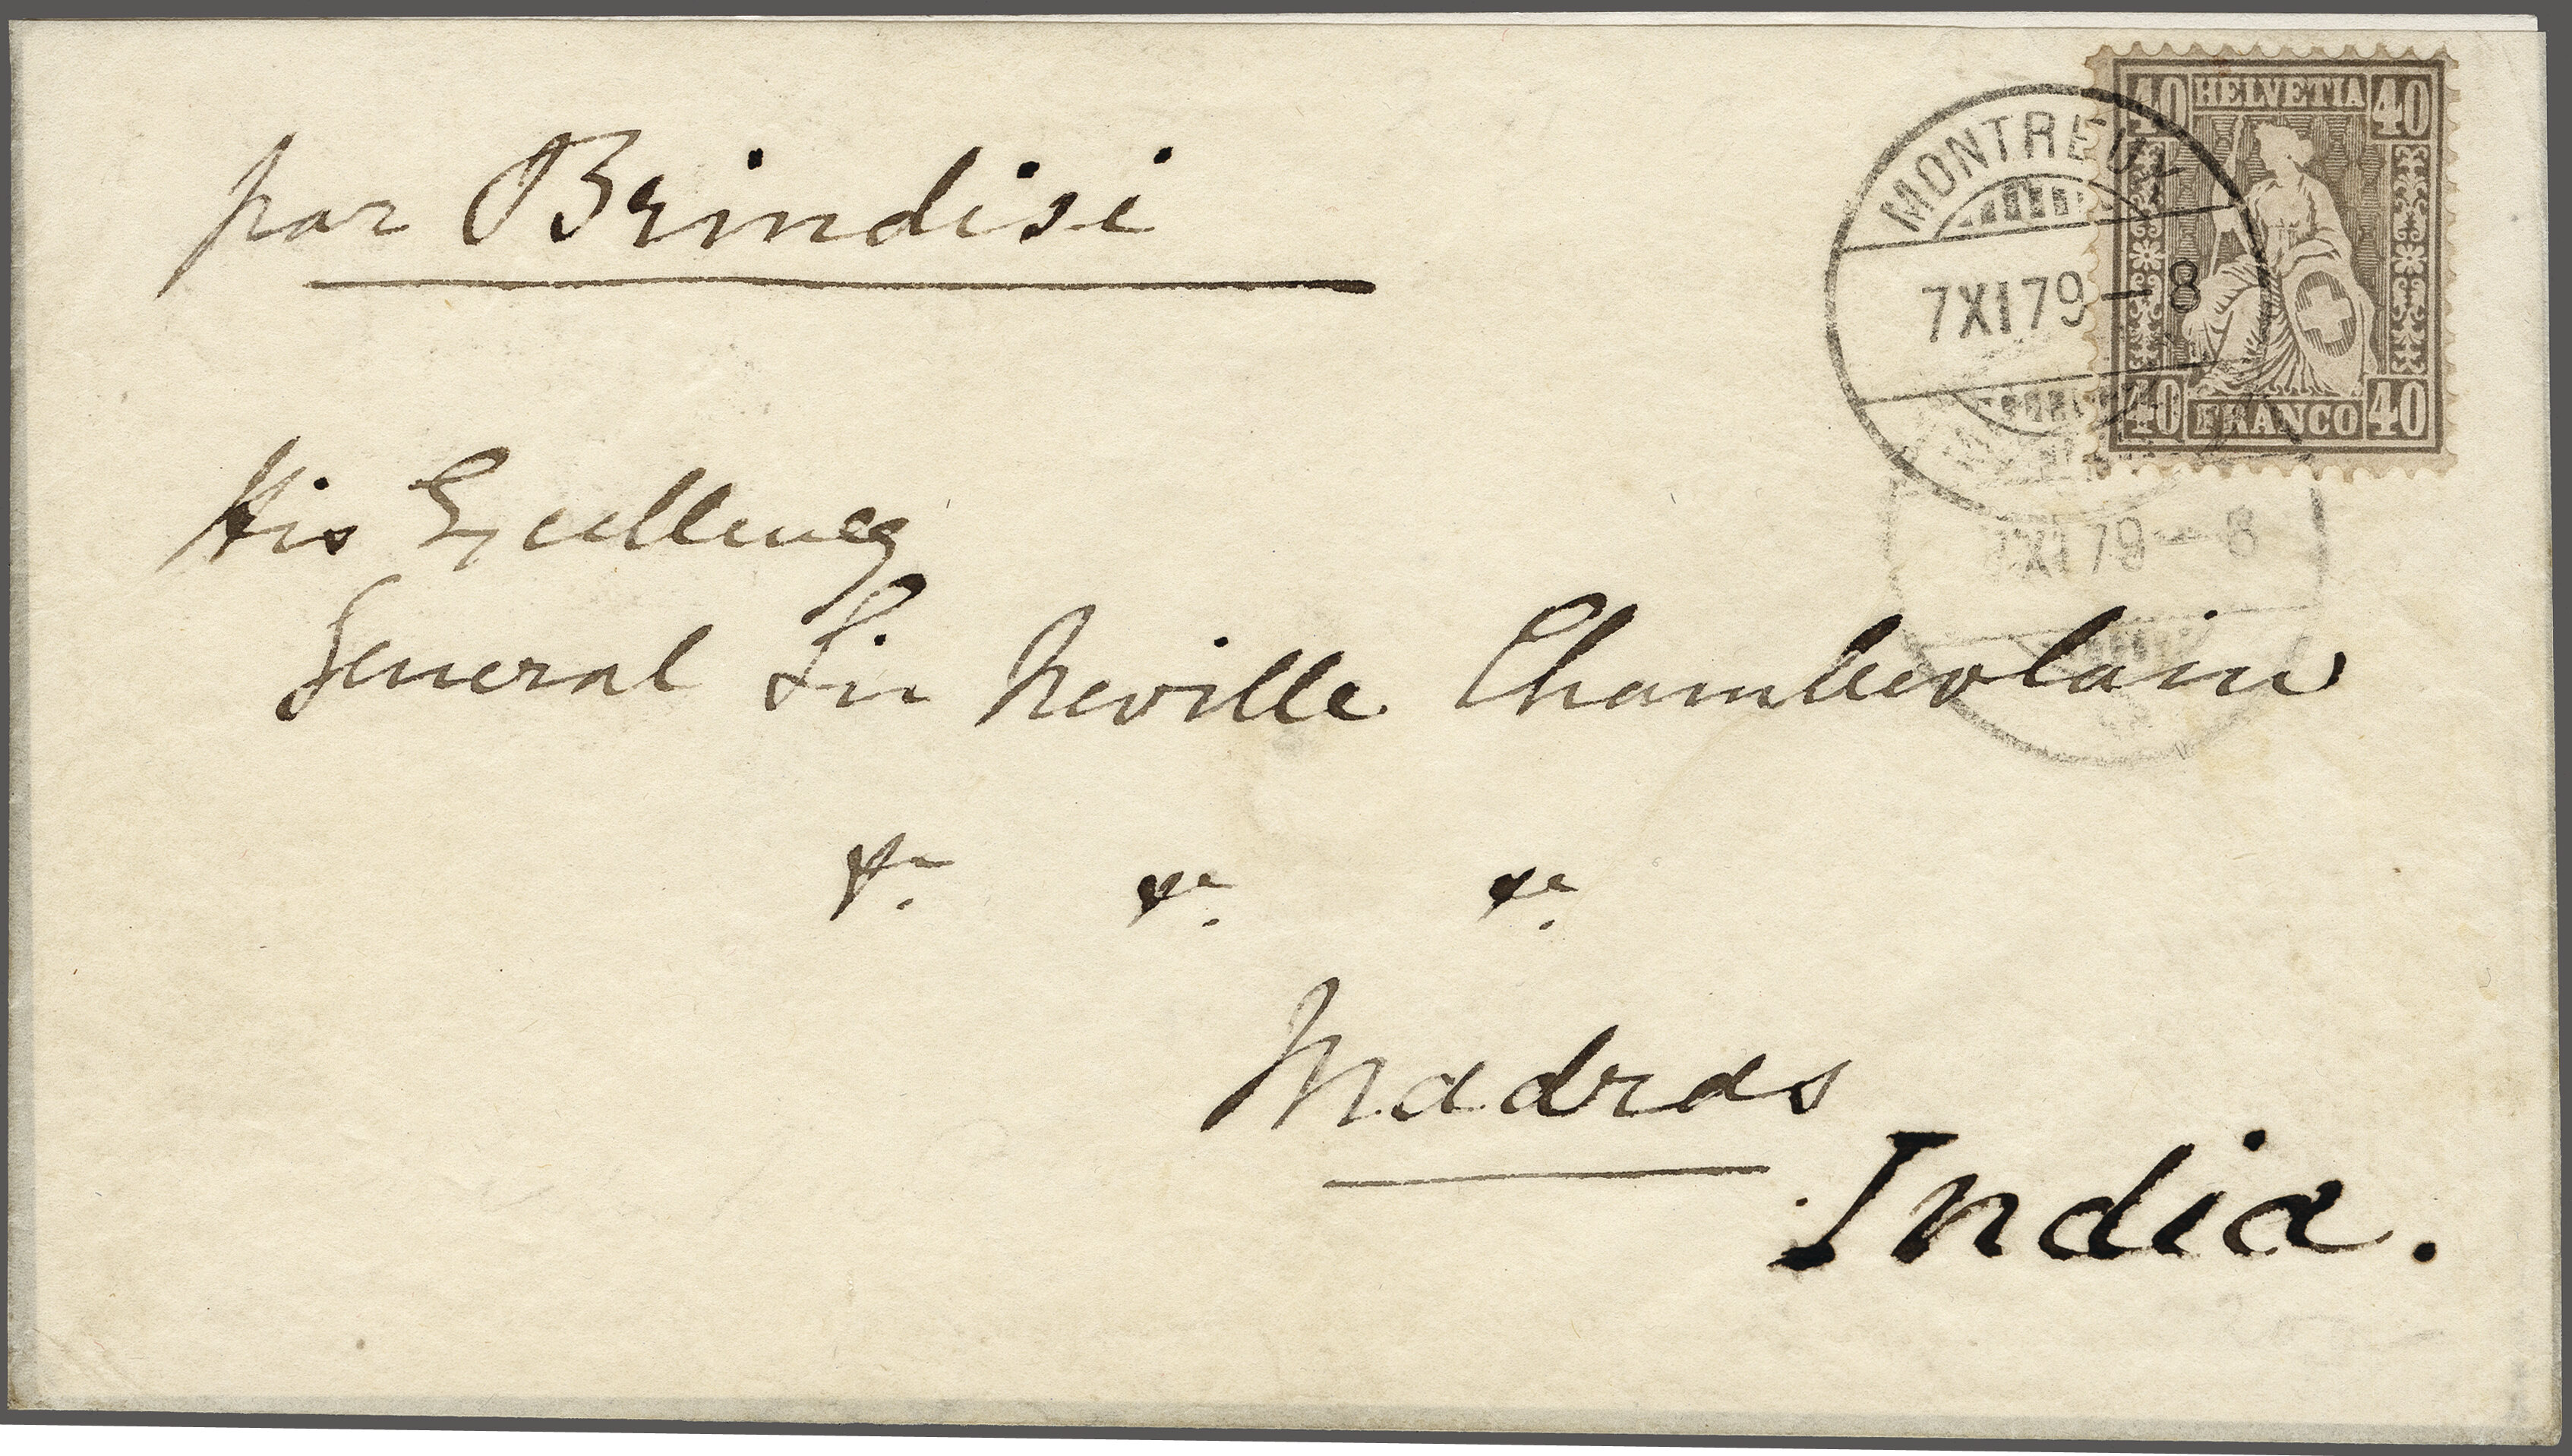 par Brindisi
40 HELVETIA 40
MONTREUX
7 XI 79 - 8
40 FRANCO 40
7 XI 79 - 8
His Excellency
General Sir Neville Chamberlain
&c. &c. &c.
Madras
India.